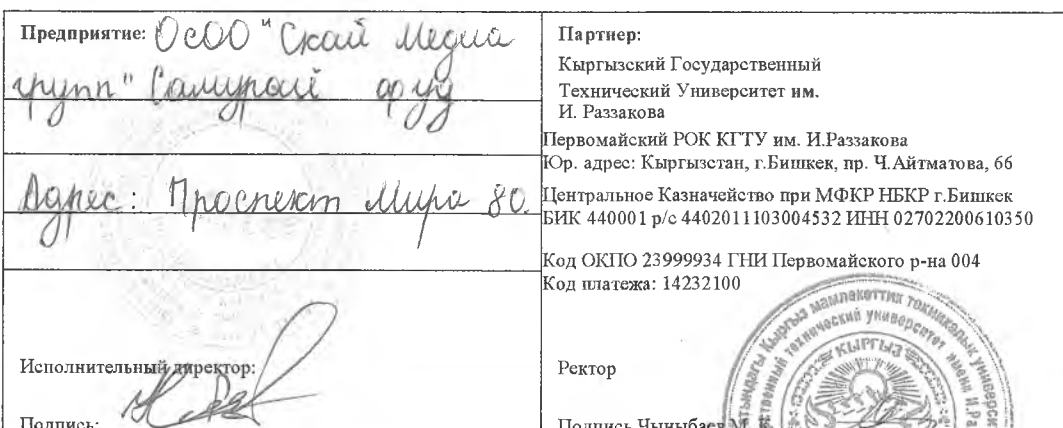 Предприятие: ОсОО "Скай Медиа
групп" Самурай фуд
Адрес: Проспект Мира 80.
Исполнительный директор:
Подпись:
Партнер:
Кыргызский Государственный
Технический Университет им.
И. Раззакова
Первомайский РОК КГТУ им. И.Раззакова
Юр. адрес: Кыргызстан, г.Бишкек, пр. Ч.Айтматова, 66
Центральное Казначейство при МФКР НБКР г.Бишкек
БИК 440001 р/с 4402011103004532 ИНН 02702200610350
Код ОКПО 23999934 ГНИ Первомайского р-на 004
Код платежа: 14232100
Ректор
Подпись Чыныбаев М. К.
мамлекеттик техникалык
технический университет имени
КЫРГЫЗ